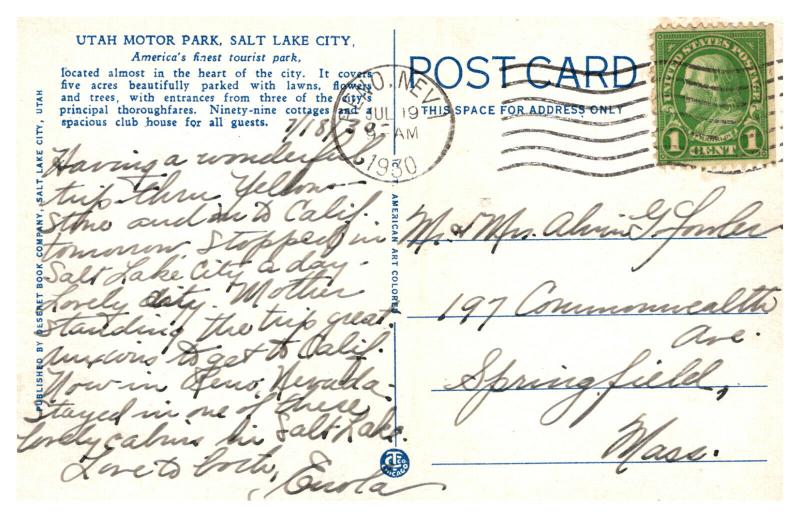 UTAH MOTOR PARK, SALT LAKE CITY,
America's finest tourist park,
located almost in the heart of the city. It covers
five acres beautifully parked with lawns, flowers
and trees, with entrances from three of the city's
principal thoroughfares. Ninety-nine cottages and a
spacious club house for all guests.
7/18/30
Having a wonderful
trip thru Yellow-
stone and in to Calif.
tomorrow. Stopped in
Salt Lake City a day-
Lovely city. Mother
standing the trip great.
Anxious to get to Calif.
Now in Reno, Nevada.
Stayed in one of these
lovely cabins in Salt Lake.
Love to both,
Enola
PUBLISHED BY DESERET BOOK COMPANY, SALT LAKE CITY, UTAH
AMERICAN ART COLORED
CHICAGO
POST CARD
THIS SPACE FOR ADDRESS ONLY
RENO, NEV.
JUL 19
9 AM
1930
UNITED STATES POSTAGE
1 CENT 1
Mr. & Mrs. Alvin G. Fowler
197 Commonwealth
Ave.
Springfield,
Mass.